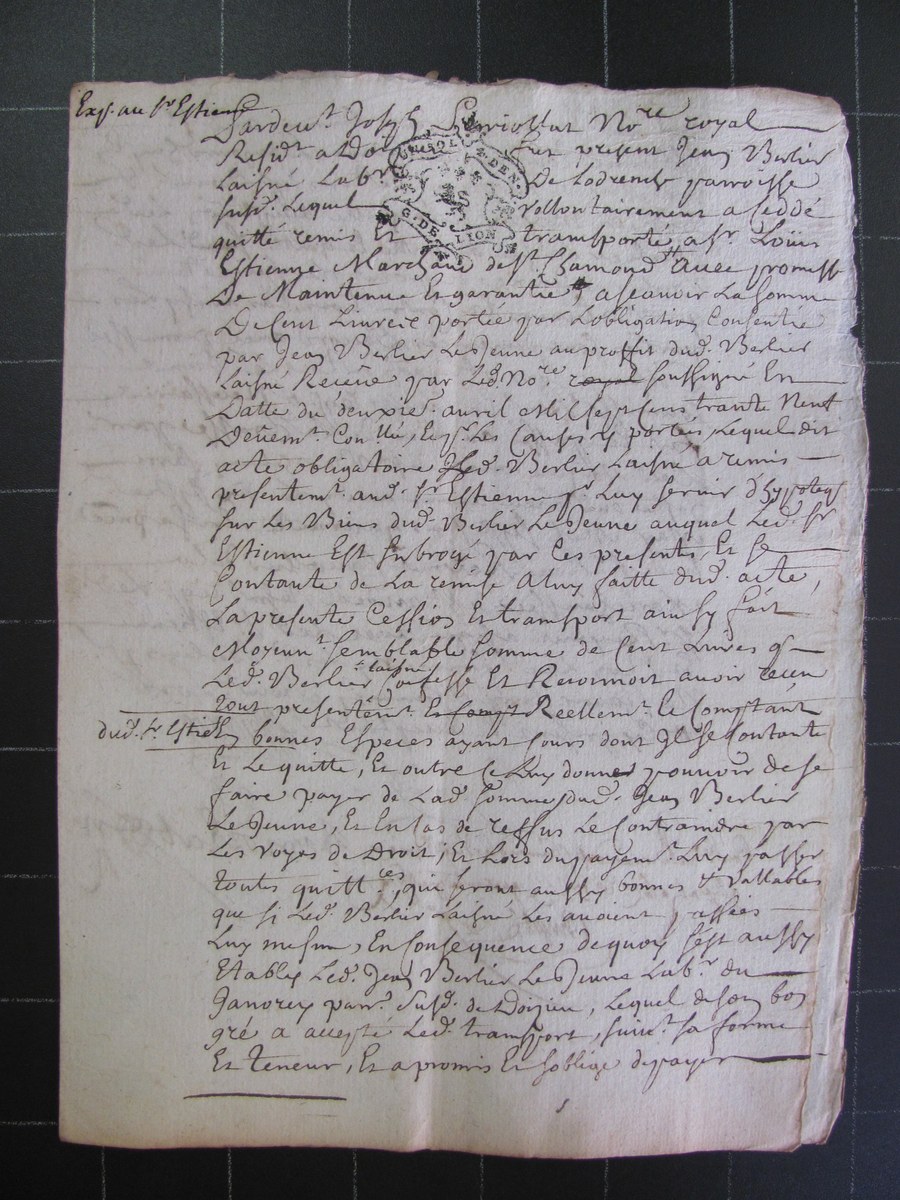 Exp. au Sr Estienne
Pardevt. Joseph Nore royal
Residt. a Doi fut present Jean Berlier
Laisné Labr. De parroisse
susd. Lequel vollontairement a ceddé
quitté remis Et transporté a Sr. Loüis
SOL. & DEN.
G. DE LION
Estienne Marchand de St. Chamond avec promesse
De Maintenue Et garantie ascavoir La somme
De Cent Livres portée par Lobligation Consentie
par Jean Berlier Le Jeune au proffit dud. Berlier
Laisné Receüe par Led. Nore royal soussigné En
Datte du deuxie. avril Mil sept Cens trante Neuf
Deüemt. Conllé, Les Causes y portées, Lequel dit
acte obligatoire Led. Berlier Laisné a remis
presentemt. aud. Sr. Estienne pr. Luy servir d'hypoteque
sur Les Biens dud. Berlier Le Jeune auquel Led. Sr
Estienne Est subrogé par Ces presents, Et se
Contante de La remise a luy faitte dud. acte,
La presente Cession Et transport ainsy fait
Moyent. semblable somme de Cent Livres q
Led. Berlier laisné Confesse Et Reconnoit avoir receu
tout presentemt. Reellemt. Le Comptant
dud. Sr. Estie En bonnes Especes ayant Cours dont Il se Contante
Et Le quitte, Et outre Ce Luy donner pouvoir de se
faire payer de Lad. somme dud. Jean Berlier
Le Jeune, Et En Cas de reffus Le Contraindre par
Les Voyes de Droit, Et Lors du payemt. Luy passer
toutes quittces, qui seront aussy bonnes & vallables
que si Led. Berlier Laisné Les avoient passées
Luy mesme, En Consequence de quoy s'est aussy
Etably Led. Jean Berlier Le Jeune Labr. du
parr. susd. de Doizieu, Lequel de son bon
gré a accepté Led. transport, suivt. sa forme
Et teneur, Et a promis Et soblige de payer